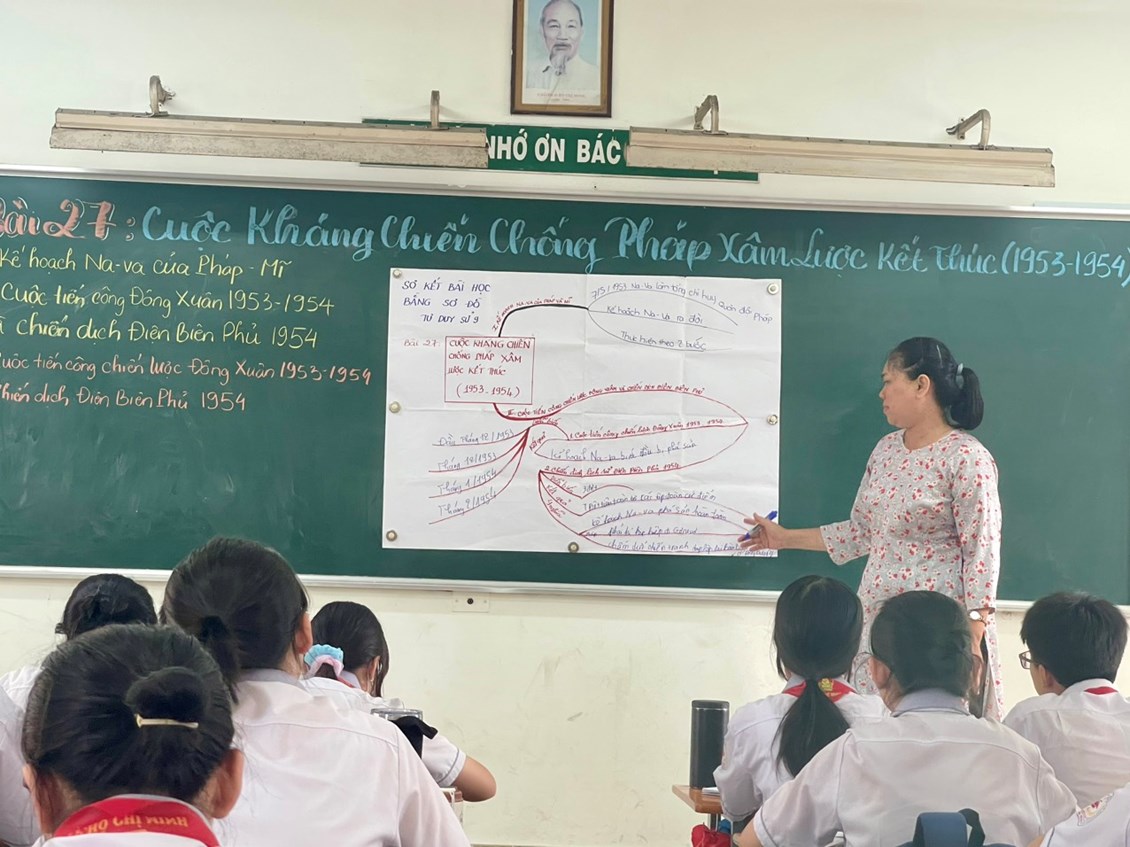 NHỚ ƠN BÁC
Bài 27: Cuộc Kháng Chiến Chống Pháp Xâm Lược Kết Thúc (1953-1954)
Kế hoạch Na-va của Pháp - Mĩ
Cuộc tiến công Đông Xuân 1953-1954
chiến dịch Điện Biên Phủ 1954
cuộc tiến công chiến lược Đông Xuân 1953-1954
chiến dịch Điện Biên Phủ 1954
SƠ KẾT BÀI HỌC
BẰNG SƠ ĐỒ
TƯ DUY SỬ 9
Bài 27:
CUỘC KHÁNG CHIẾN
CHỐNG PHÁP XÂM
LƯỢC KẾT THÚC
(1953-1954)
I. KẾ HOẠCH NA-VA CỦA PHÁP VÀ MĨ
7/5/1953 Na-Va làm tổng chỉ huy quân đội Pháp
Kế hoạch Na-Va ra đời
Thực hiện theo 2 bước
II. CUỘC TIẾN CÔNG CHIẾN LƯỢC ĐÔNG XUÂN VÀ CHIẾN DỊCH ĐIỆN BIÊN PHỦ
1. Cuộc tiến công chiến lược Đông Xuân 1953-1954
Kế hoạch Na-va bước đầu bị phá sản
Đầu tháng 12/1953
Tháng 12/1953
Tháng 1/1954
Tháng 2/1954
2. Chiến dịch lịch sử Điện Biên Phủ 1954
kế hoạch Na-va phá sản hoàn toàn
HỒ CHÍ MINH